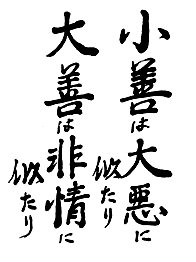 小善は大悪に似たり
大善は非情に似たり